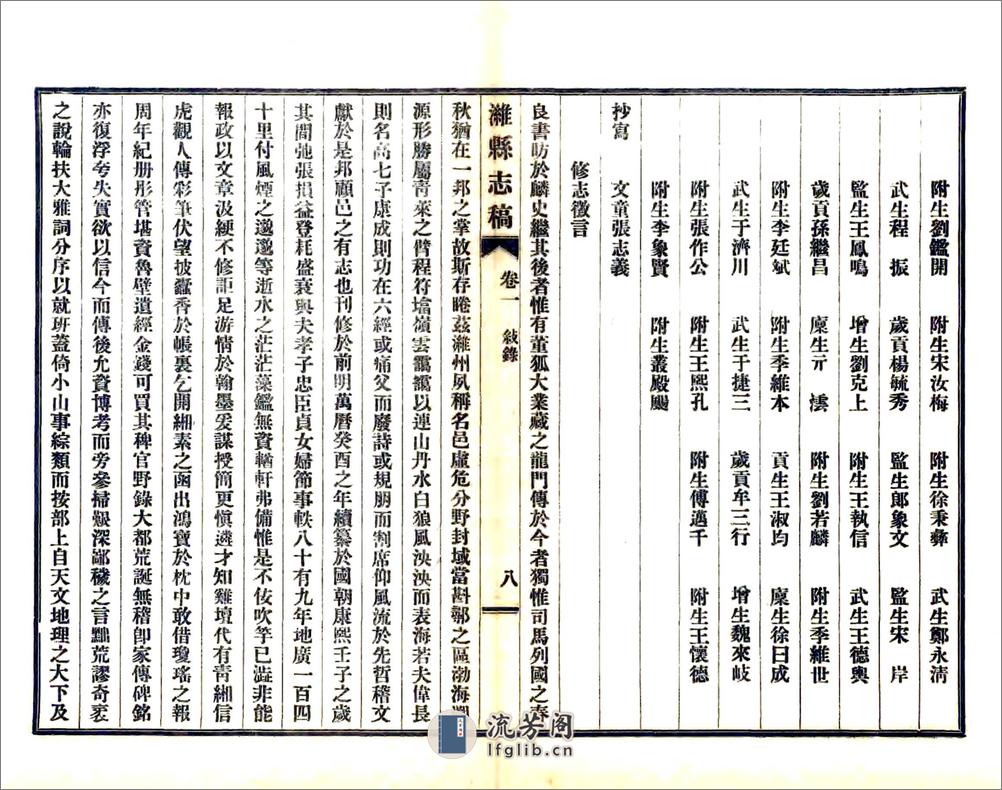 附生劉鑑開　附生宋汝梅　附生徐秉彝　武生鄭永清
武生程　振　歲貢楊毓秀　監生郎象文　監生宋　岸
監生王鳳鳴　增生劉克上　附生王執信　武生王德輿
歲貢孫繼昌　廩生亓　澐　附生劉若麟　附生季維世
附生李廷斌　附生季維本　貢生王淑均　廩生徐日成
武生于濟川　武生于捷三　歲貢牟三行　增生魏來岐
附生張作公　附生王熙孔　附生傅邁千　附生王懷德
附生李象賢　附生叢殿颺
抄寫　文童張志義
修志徵言
良書昉於麟史繼其後者惟有董狐大業藏之龍門傳於今者獨惟司馬列國之春
濰縣志稿　卷一　敍錄　八
秋猶在一邦之掌故斯存睠茲濰州夙稱名邑虛危分野封域當斟鄩之區渤海
源形勝屬青萊之臂程符墖嶺雲靄靄以連山丹水白狼風泱泱而表海若夫偉長
則名高七子康成則功在六經或痛父而廢詩或規朋而割席仰風流於先哲稽文
獻於是邦顧邑之有志也刊修於前明萬曆癸酉之年續纂於國朝康熙壬子之歲
其間弛張損益登耗盛衰與夫孝子忠臣貞女婦節事軼八十有九年地廣一百四
十里付風煙之邈邈等逝水之茫茫藻鑑無資輶軒弗備惟是不佞吹竽已濫非能
報政以文章汲綆不修詎足游情於翰墨爰謀授簡更愼遴才知雞壇代有靑緗信
虎觀人傳彩筆伏望披蠹香於帳裏乞開緗素之函出鴻寶於枕中敢借瓊瑤之報
周年紀册彤管堪資魯壁遺經金錢可買其稗官野錄大都荒誕無稽卽家傳碑銘
亦復浮夸失實欲以信今而傳後允資博考而旁參掃緞深鄙穢之言黜荒謬奇袤
之說輪扶大雅詞分序以就班蓋倚小山事綜類而按部上自天文地理之大下及
流芳阁
lfglib.cn